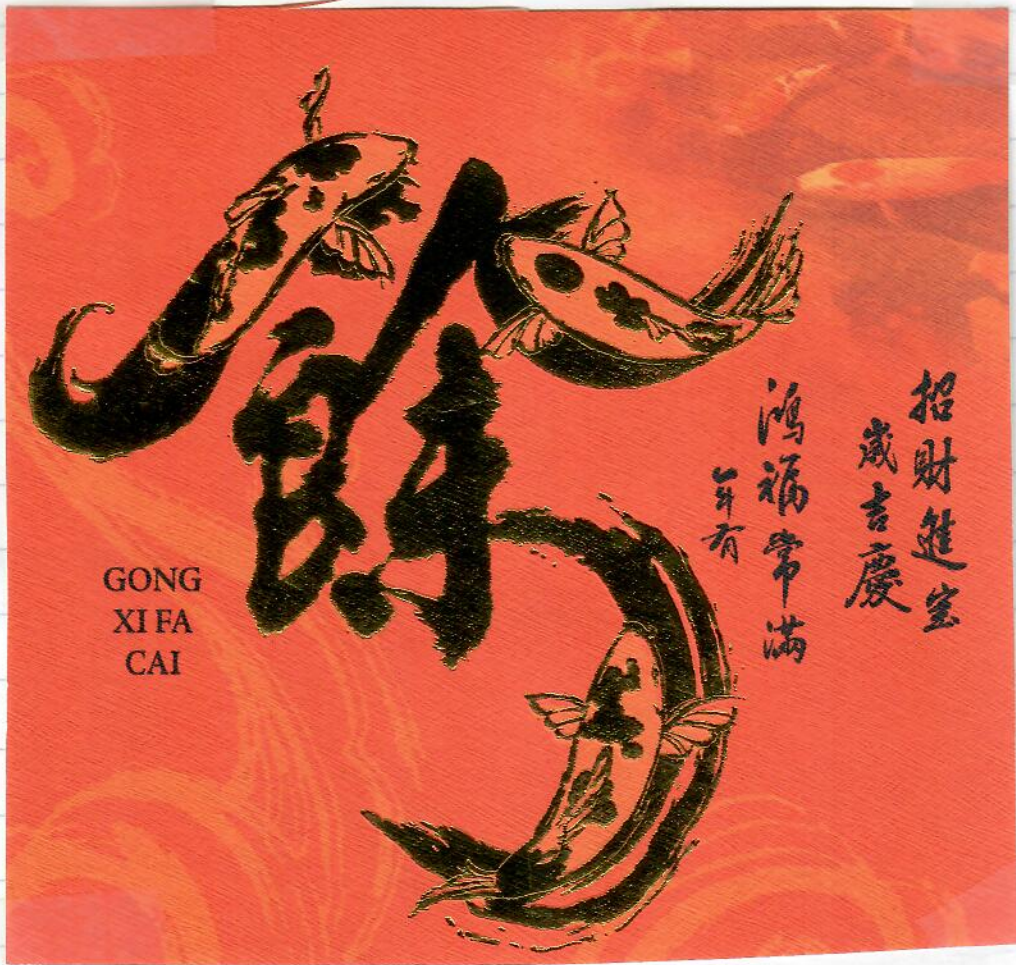 招財進宝
歲吉慶
鴻福常滿
年有
餘
GONG
XI FA
CAI